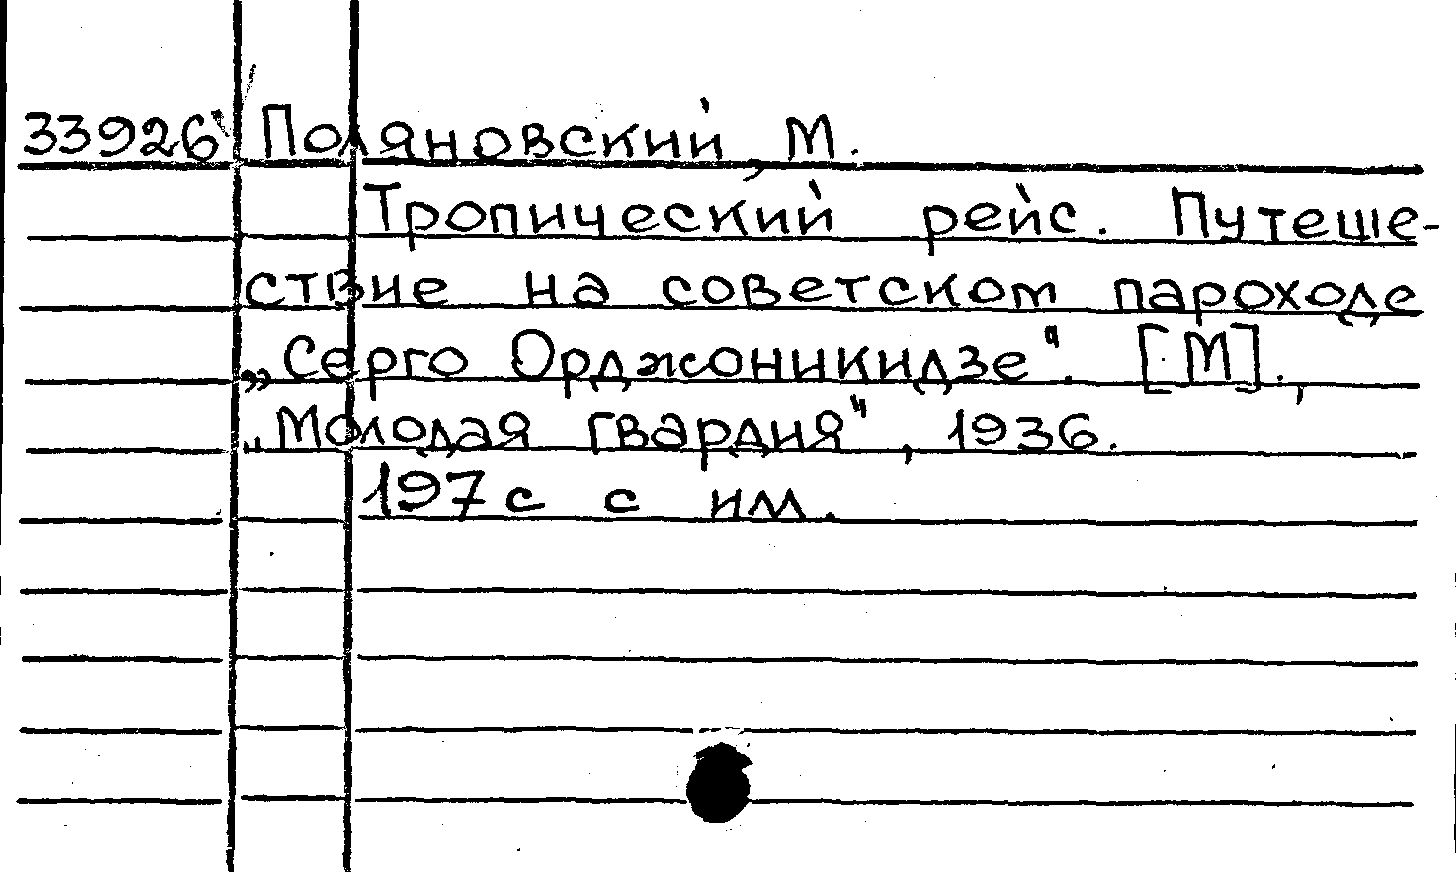 33926 Поляновский, М.
Тропический рейс. Путеше-
ствие на советском пароходе
„Серго Орджоникидзе“. [М].,
„Молодая гвардия“, 1936.
197 с с ил.